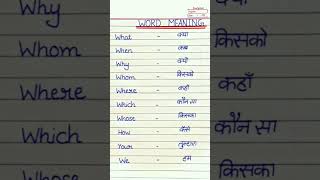 Why
Whom
Where
Which
Whose
WORD MEANING
What - क्या
When - कब
Why - क्यों
Whom - किसको
Where - कहाँ
Which - कौन सा
Whose - किसका
How - कैसे
Your - तुम्हारा
We - हम
किसको
कहाँ
कौन सा
किसका